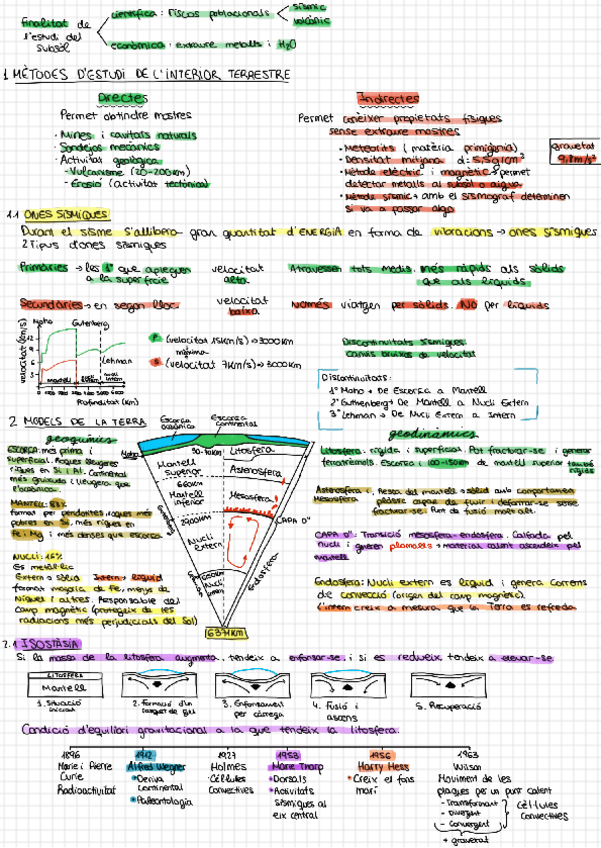 finalitat de l'estudi del subsòl
científica: riscos poblacionals
sísmic
volcànic
econòmica: extraure metalls i H2O
1. MÈTODES D'ESTUDI DE L'INTERIOR TERRESTRE
Directes
Permet obtindre mostres
· Mines i cavitats naturals
· Sondejos mecànics
· Activitat geològica
- Vulcanisme (20-200km)
- Erosió (activitat tectònica)
Indirectes
Permet conèixer propietats físiques
sense extraure mostres
- Meteorits (matèria primigènia)
- Densitat mitjana d: 5,5g/cm³
- Mètode elèctric i magnètic → permet
detectar metalls al subsòl o aigua
- Mètode sísmic → amb el sismograf determinen
si va a passar algo
gravetat
9,8m/s²
1.1 ONES SÍSMIQUES
Durant el sisme s'allibera gran quantitat d'ENERGIA en forma de vibracions → ones sísmiques
2 Tipus d'ones sísmiques
Primàries → les 1º que apleguen
a la superfície
velocitat
alta
Atravessen tots medis. més ràpids als sòlids
que als líquids
Secundàries → en segon lloc.
velocitat
baixa
Només viatgen per sòlids. No per líquids
Moho
Gutenberg
Lehman
velocitat (km/s)
12
9
6
3
mantell
Profunditat (km)
P (velocitat 15km/s) → 3000km
màxima
S (velocitat 7km/s) → 3000km
Discontinuitats sísmiques
canvis bruixos de velocitat
Discontinuïtats:
1º Moho → De Escorça a Mantell
2º Guthenberg → De Mantell a Nucli Extern
3º Lehman → De Nucli Extern a Intern
2. MODELS DE LA TERRA
geoquímics
ESCORÇA: més prima i
superficial. Roques lleugeres
riques en Si i Al. Continental
més gruixuda i lleugera que
l'oceànica.
MANTELL: 83%
format per peridotites, roques més
pobres en Si, més riques en
Fe i Mg i més denses que escorça
NUCLI: 16%
És metàl·lic
Extern → sòlid Intern → líquid
format majoria de Fe, menys de
Níquel i altres. Responsable del
camp magnètic (protegeix de les
radiacions més perjudicials del Sol)
Escorça
oceànica
Escorça
continental
Moho
30-70km
Litosfera
Mantell
Superior
Astenosfera
670km
Mantell
Inferior
Mesosfera
2900km
CAPA D''
Nucli
Extern
Endosfera
Nucli
Intern
6371KM
geodinàmics
Litosfera: rígida i superficial. Pot fracturar-se i generar
terratrèmols. Escorça i (100-150km) de mantell superior també
rígids
Astenosfera i Mesosfera: Resta del mantell → sòlid amb comportament
plàstic capaç de fluir i deformar-se sense
fracturar-se. Per de fusió molt alt.
CAPA D'': Transició mesosfera-endosfera. Calfada pel
nucli i generen plomalls → material calent ascendeix pel
mantell
Endosfera: Nucli extern és líquid i genera corrents
de convecció (origen del camp magnètic).
L'intern creix a mesura que la Terra es refreda
2.1 ISOSTÀSIA
Si la massa de la litosfera augmenta, tendeix a enfonsar-se, i si es redueix, tendeix a elevar-se
LITOSFERA
Mantell
1. Situació
inicial
2. Formació d'un
casquet de gel
3. Enfonsament
per càrrega
4. Fusió i
ascens
5. Recuperació
Condició d'equilibri gravitacional a la que tendeix la litosfera.
1896
Marie i Pierre
Curie
Radioactivitat
1912
Alfred Wegner
• Deriva
continental
• Paleontologia
1927
Holmes
Cèl·lules
convectives
1953
Marie Tharp
• Dorsals
• Activitats
sísmiques al
eix central
1956
Harry Hess
• Creix el fons
marí
1963
Wilson
Moviment de les
plaques per un punt calent
- Transformant
- Divergent
- Convergent
cèl·lules
convectives
+ gravetat